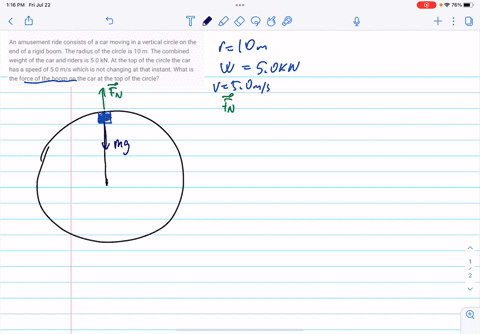 1:16 PM Fri Jul 22
76%
An amusement ride consists of a car moving in a vertical circle on the
end of a rigid boom. The radius of the circle is 10 m. The combined
weight of the car and riders is 5.0 kN. At the top of the circle the car
has a speed of 5.0 m/s which is not changing at that instant. What is
the force of the boom on the car at the top of the circle?
r = 10m
W = 5.0KN
V = 5.0 m/s
F_N
F_N
mg
1
/
2